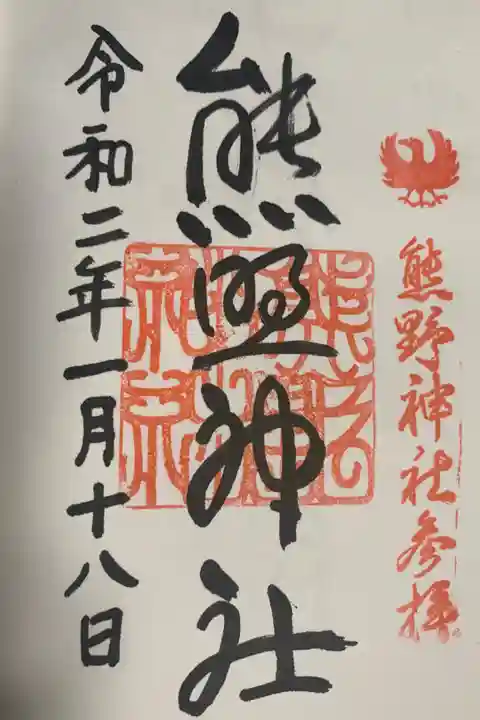 熊野神社参拝
熊野神社
令和二年一月十八日